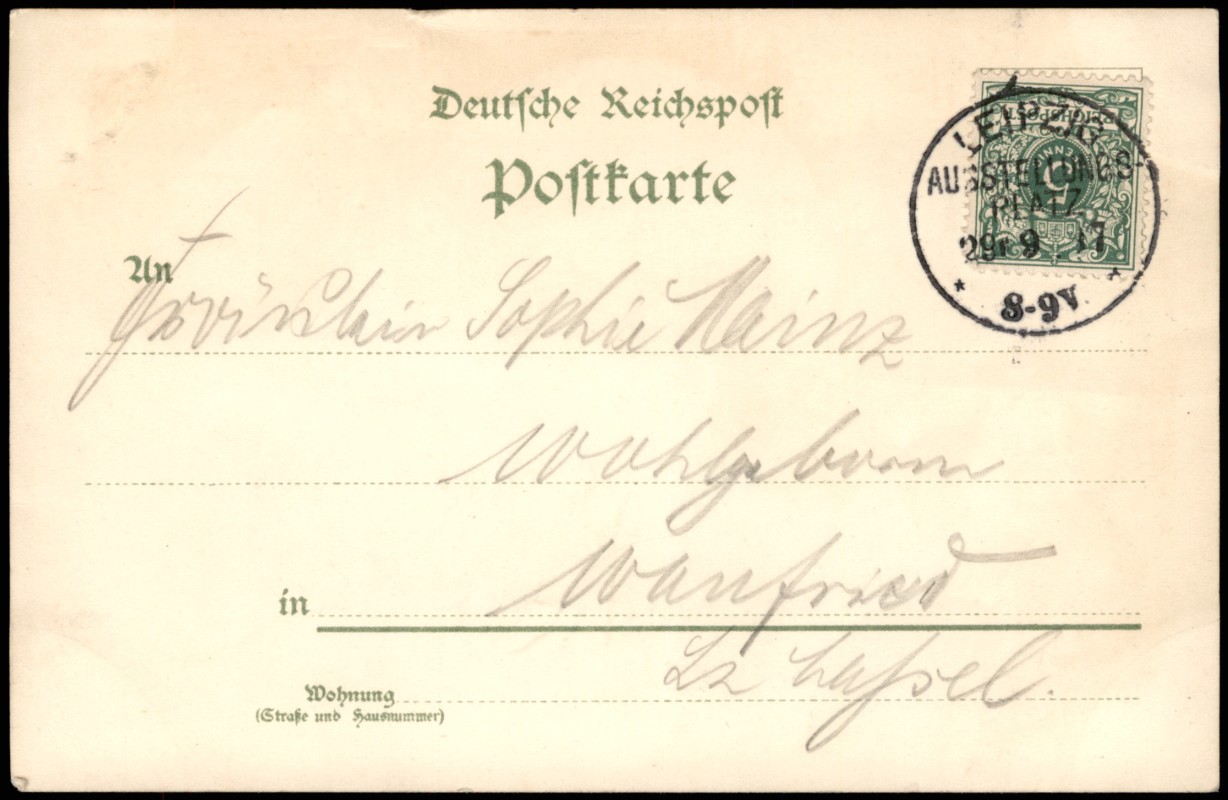 Deutsche Reichspost
Postkarte
LEIPZIG
AUSSTELLUNGS-
PLATZ
29. 9.
8-9V
REICHSPOST
5
An
Fräulein Sophie
Wohlgeborn
in Wanfried
Bz Cassel.
Wohnung
(Straße und Hausnummer)